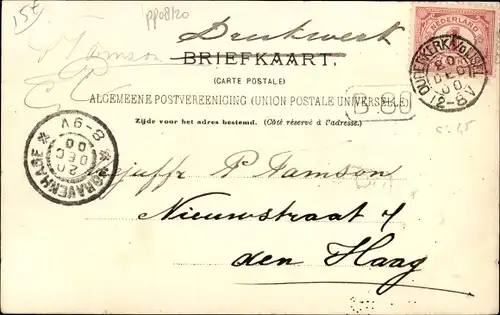 15t
pp08120
Drukwerk
P Tamson
BRIEFKAART.
(CARTE POSTALE)
ALGEMEENE POSTVEREENIGING (UNION POSTALE UNIVERSELLE)
Zijde voor het adres bestemd. (Côté réservé à l'adresse.)
NEDERLAND
OUDERKERK A/D IJSEL
20
DEC
00
12-8V
'SGRAVENHAGE
8-9V
20
DEC
00
Mejuffr P Tamson
Nieuwstraat 4
den Haag